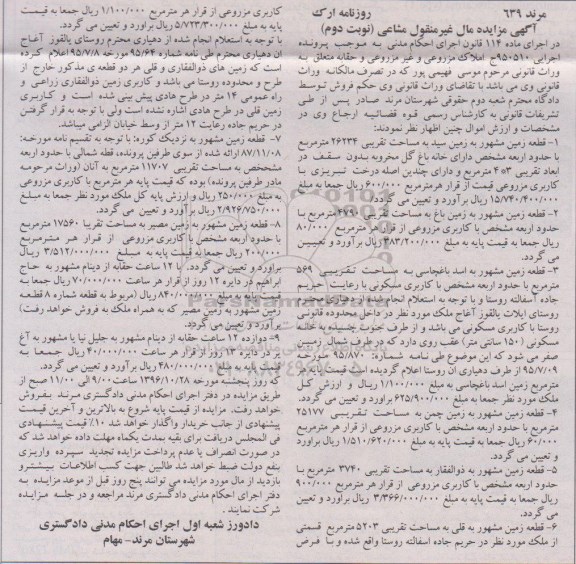 مرند ۶۳۹ روزنامه ارک
آگهی مزایده مال غیرمنقول مشاعی (نوبت دوم)
در اجرای ماده ۱۱۴ قانون اجرای احکام مدنی به موجب پرونده
اجرایی ۹۵۰۵۱۰ج املاک مزروعی و غیر مزروعی و حقابه متعلق به
وراث قانونی مرحوم موسی فهیمی پور که در تصرف مالکانه وراث
قانونی وی می باشد با تقاضای وراث قانونی وی حکم فروش توسط
دادگاه محترم شعبه دوم حقوقی شهرستان مرند صادر پس از طی
تشریفات قانونی به کارشناس رسمی قوه قضائیه ارجاع وی در
مشخصات و ارزش اموال چنین اظهار نظر نمودند:
۱- قطعه زمین مشهور به زمین سید به مساحت تقریبی ۲۶۲۳۴ مترمربع
با حدود اربعه مشخص دارای خانه باغ گل مخروبه بدون سقف در
ابعاد تقریبی ۴۰۳ مترمربع و دارای چندین اصله درخت تبریزی با
کاربری مزروعی قیمت از قرار هر مترمربع ۶۰۰/۰۰۰ ریال جمعا به مبلغ
۱۵/۷۴۰/۴۰۰/۰۰۰ ریال برآورد و تعیین می گردد.
۲- قطعه زمین مشهور به زمین باغ به مساحت تقریبی ۴۷۹۰ مترمربع با
حدود اربعه مشخص با کاربری مزروعی از قرار هر مترمربع ۸۰/۰۰۰
ریال جمعا به قیمت پایه به مبلغ ۳۸۳/۲۰۰/۰۰۰ ریال برآورد و تعیین می
گردد.
۳- قطعه زمین مشهور به اسد باغچاسی به مساحت تقریبی ۵۶۹
مترمربع با حدود اربعه مشخص با کاربری مسکونی با رعایت حریم
جاده آسفالته روستا و با توجه به استعلام انجام شده از دهیاری محترم
روستای ایلات یالقوز آغاج ملک مورد نظر در داخل محدوده قانونی
روستا با کاربری مسکونی می باشد و از طرف جنوب چسبیده به خانه
مسکونی (۱۵۰ سانتی متر) عقب روی دارد که در طرف شمال زمین
صفر می شود که این موضوع طی نامه شماره: ۹۵/۸۷۰ مورخه
۹۵/۷/۰۹ از طرف دهیاری آن روستا اعلام گردیده است قیمت پایه هر
مترمربع زمین اسد باغچاسی به مبلغ ۱/۱۰۰/۰۰۰ ریال و ارزش کل
ملک مورد نظر جمعا به مبلغ ۶۲۵/۹۰۰/۰۰۰ برآورد و تعیین می گردد.
۴- قطعه زمین مشهور به زمین چمن به مساحت تقریبی ۲۵۱۷۷
مترمربع با حدود اربعه مشخص با کاربری مزروعی از قرار هر مترمربع
۶۰/۰۰۰ ریال جمعا به قیمت پایه به مبلغ ۱/۵۱۰/۶۲۰/۰۰۰ ریال برآورد
و تعیین می گردد.
۵- قطعه زمین مشهور به ذوالفقار به مساحت تقریبی ۳۷۴۰ مترمربع با
حدود اربعه مشخص با کاربری مزروعی از قرار هر مترمربع ۹۰۰/۰۰۰
ریال جمعا به قیمت پایه به مبلغ ۳/۳۶۶/۰۰۰/۰۰۰ ریال برآورد و تعیین
می گردد.
۶- قطعه زمین مشهور به قلی به مساحت تقریبی ۵۲۰۳ مترمربع قسمتی
از ملک مورد نظر در حریم جاده اسفالته روستا واقع شده و با فرض
کاربری مزروعی از قرار هر مترمربع ۱/۱۰۰/۰۰۰ ریال جمعا به قیمت
پایه به مبلغ ۵/۷۲۳/۳۰۰/۰۰۰ ریال برآورد و تعیین می گردد.
با توجه به استعلام انجام شده از دهیاری محترم روستای یالقوز آغاج
ان دهیاری محترم طی نامه شماره ۹۵/۶۴ مورخه ۹۵/۷/۸ اعلام کرده
است که زمین های ذوالفقاری و قلی هر دو قطعه ی مذکور خارج از
طرح و محدوده روستا می باشد و کاربری زمین ذوالفقاری زراعی و
راه عمومی ۱۴ متر در طرح هادی پیش بینی شده است و کاربری
زمین قلی در طرح هادی اشاره نشده است ولی با توجه به قرار گرفتن
در حریم جاده رعایت ۱۲ متر از وسط خیابان الزامی میباشد.
۷- قطعه زمین مشهور به نزدیک کوره: با توجه به تقسیم نامه مورخه:
۸۷/۱۱/۰۸ ارائه شده از سوی طرفین پرونده، قطه شمالی با حدود اربعه
مشخص به مساحت تقریبی ۱۱۷۰۷ مترمربع به آنان (وراث مرحومه
مادر طرفین پرونده) بوده که قیمت پایه هر مترمربع با کاربری مزروعی
به مبلغ ۲۵۰/۰۰۰ ریال و ارزش پایه کل ملک مورد نظر جمعا به مبلغ
۲/۹۲۶/۷۵۰/۰۰۰ ریال برآورد و تعیین می گردد.
۸- قطعه زمین مشهور به زمین مصیر به مساحت تقریبا ۱۷۵۶۰ مترمربع
با حدود اربعه مشخص با کاربری مزروعی از قرار هر مترمربع
۲۰۰/۰۰۰ ریال جمعا به قیمت پایه به مبلغ ۳/۵۱۲/۰۰۰/۰۰۰ ریال
براورد و تعیین می گردد. با ۱۲ ساعت حقابه از دینام مشهور به حاج
ابراهیم در دایره ۱۲ روز از قرار هر ساعت ۷۰/۰۰۰/۰۰۰ ریال جمعا به
قیمت پایه به مبلغ ۸۴۰/۰۰۰/۰۰۰ ریال (مربوط به قطعه شماره ۸ قطعه
زمین مشهور به زمین مصیر که به همراه ملک به فروش خواهد رفت)
برآورد و تعیین می گردد.
۹- دوازده ۱۲ ساعت حقابه از دینام مشهور به جلیل نیا یا مشهور به آغ
یر در دایره ۱۳ روز از قرار هر ساعت ۴۰/۰۰۰/۰۰۰ ریال جمعا به
قیمت پایه به مبلغ ۴۸۰/۰۰۰/۰۰۰ ریال برآورد و تعیین می گردد.
که روز پنجشنبه مورخه ۱۳۹۶/۱۰/۲۸ ساعت ۹/۰۰ الی ۱۱/۰۰ صبح از
طریق مزایده در دفتر اجرای احکام مدنی دادگستری مرند بفروش
خواهد رفت. مزایده از قیمت پایه شروع به بالاترین و آخرین قیمت
پیشنهادی از جانب خریدار واگذار خواهد شد ۱۰٪ قیمت پیشنهادی
فی المجلس دریافت برای بقیه بمدت یکماه مهلت داده خواهد شد که
در صورت انصراف یا عدم پرداخت مزایده تجدید سپرده واریزی
بنفع دولت ضبط خواهد شد طالبین جهت کسب اطلاعات بیشترو
بازدید از مال مورد مزایده می توانند پنج روز قبل از موعد مزایده به
دفتر اجرای احکام مدنی دادگستری مرند مراجعه و در جلسه مزایده
شرکت نمایند.
دادورز شعبه اول اجرای احکام مدنی دادگستری
شهرستان مرند- مهام